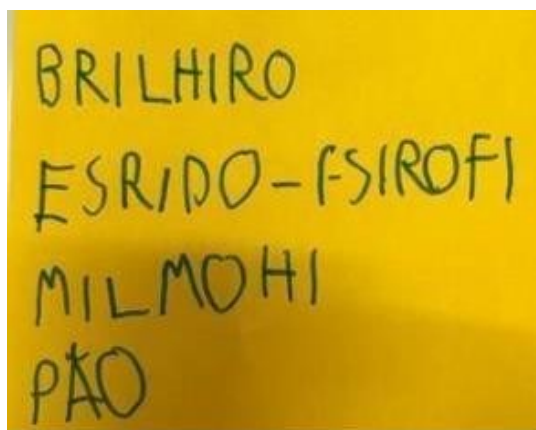 BRILHIRO
ESRIDO-FSIROFI
MILMOHI
PÃO